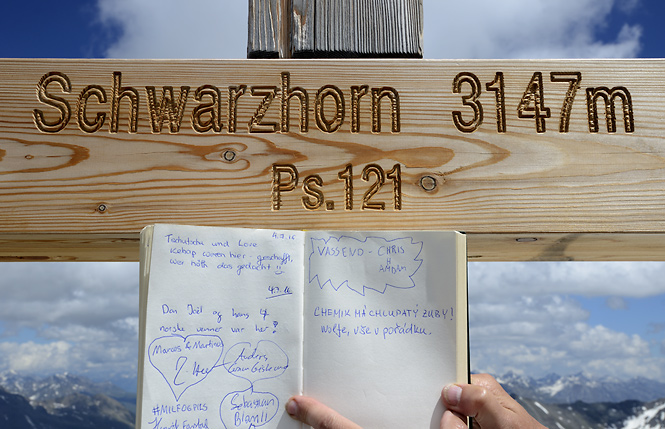 Schwarzhorn 3147m
Ps.121
4.7.16
Tschutschu und Love
kebap waren hier - geschafft,
wer hätt das gedacht!!
4.7.16
Dan Joël og hans 4
norske venner var her!
Marcos & Martina
Anders
Sebastian
#MILFOGPIKS
VASSEVD - CHRIS
&
CHEMIK MÁ CHLUPATÝ ZUBY!
Wolfe, vše v pořádku.